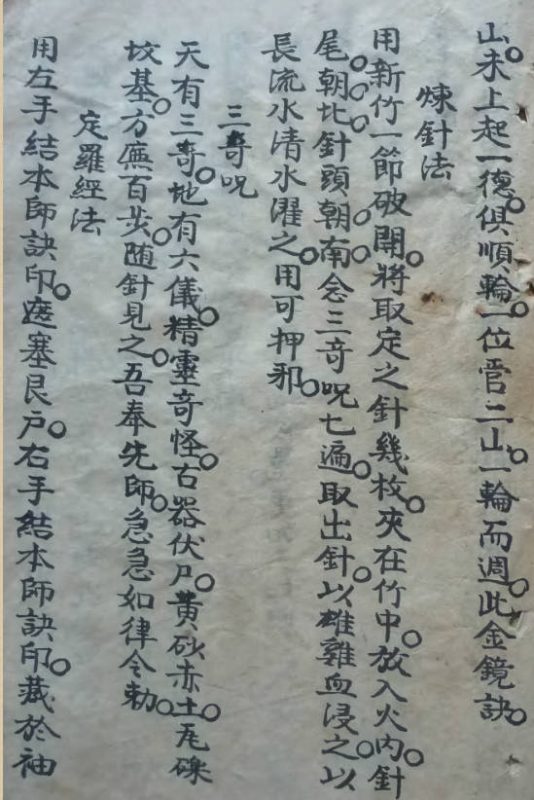 山。未上起一德。俱順輪。一位管二山。一輪而週。此金鏡訣。
煉針法
用新竹一節破開。將取定之針幾枚。夾在竹中。放入火內。針
尾朝北。針頭朝南。念三奇呪七遍。取出針。以雄雞血浸之。以
長流水清水濯之。用可押邪。
三奇呪
天有三奇。地有六儀。精靈奇怪。古器伏尸。黃砂赤土。瓦礫
坟基。方廣百步。随針見之。吾奉先師。急急如律令勅。
定羅經法
用左手結本師訣印。遮塞艮户。右手結本師訣印。藏於袖